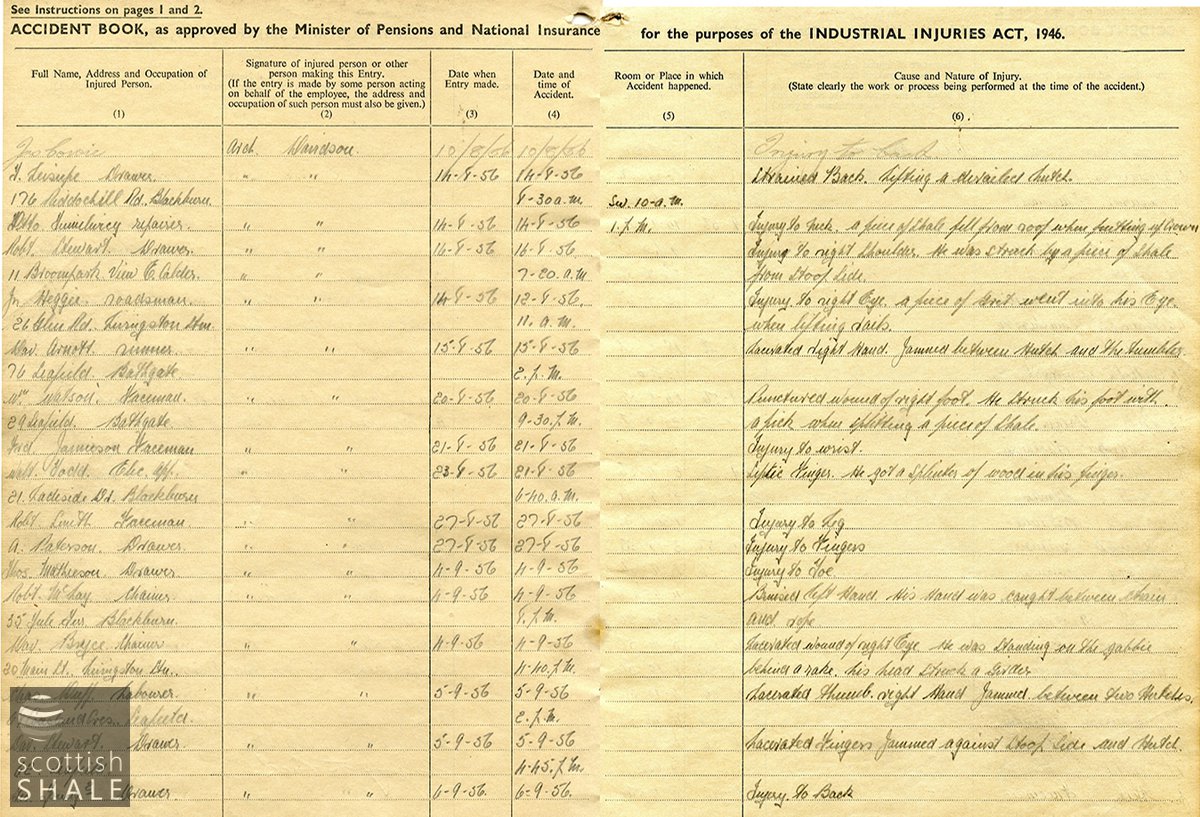 See Instructions on pages 1 and 2.
ACCIDENT BOOK, as approved by the Minister of Pensions and National Insurance for the purposes of the INDUSTRIAL INJURIES ACT, 1946.
Full Name, Address and Occupation of Injured Person. (1)
Signature of injured person or other person making this Entry. (If the entry is made by some person acting on behalf of the employee, the address and occupation of such person must also be given.) (2)
Date when Entry made. (3)
Date and time of Accident. (4)
Room or Place in which Accident happened. (5)
Cause and Nature of Injury. (State clearly the work or process being performed at the time of the accident.) (6)
Jas Cowie Arch. Davidson. 10/8/56 10/8/56 Injury to back
Drawer " " 14-8-56 14-8-56 Strained Back. Lifting a derailed hutch.
176 Rd. Blackburn 8-30 a.m. 10-a.m.
repairer " " 14-8-56 14-8-56 1.p.m. Injury to neck. a piece of shale fell from roof when putting up crown
Robt. Stewart. Drawer " " 16-8-56 16-8-56 Injury to right shoulder. He was struck by a piece of shale
11 Broompark View E. Calder. " " 7-20 a.m from stoop side.
Jn Heggie. roadsman. " " 14-8-56 12-8-56 Injury to right Eye. a piece of Grit went into his Eye
26 Glen Rd. Livingston Stn. 11. a.m. when lifting rails.
Dav. Arnott. runner. " " 15-8-56 15-8-56 Lacerated right Hand. Jammed between Hutch and the tumbler.
76 Leafield. Bathgate 2.p.m.
Wm Watson. Faceman. " " 20-8-56 20-8-56 Punctured wound of right foot. He struck his foot with
29 Leafield. Bathgate 9-30.p.m. a pick when splitting a piece of shale.
Jamieson Faceman 21-8-56 21-8-56 Injury to wrist.
Elec. app. " " 23-8-56 21-8-56 Septic Finger. He got a splinter of wood in his finger.
21. Blackburn 6-40.a.m.
Robt Smith Faceman " " 27-8-56 27-8-56 Injury to Leg
A. Paterson. Drawer. " " 27-8-56 27-8-56 Injury to Fingers
Thos. Mathieson. Drawer " " 4-9-56 4-9-56 Injury to Toe
Robt. McKay Chainer " " 4-9-56 4-9-56 Bruised left Hand. His Hand was caught between chain
35 Yule Ter. Blackburn. 8.p.m. and rope
Dav. Bryce Chainer " " 4-9-56 4-9-56 Lacerated wound of right Eye. He was standing on the gabbie
20 Main St. Livingston Stn. 4-40.p.m. behind a rake. his head struck a Girder
Labourer. " " 5-9-56 5-9-56 Lacerated thumb. right Hand Jammed between two Hutches,
Seafield. 2.p.m.
Dav. Stewart. Drawer " " 5-9-56 5-9-56 Lacerated Fingers Jammed against Stoop Side and Hutch.
4-45.p.m.
Drawer " " 6-9-56. 6-9-56. Injury to Back
scottish
SHALE